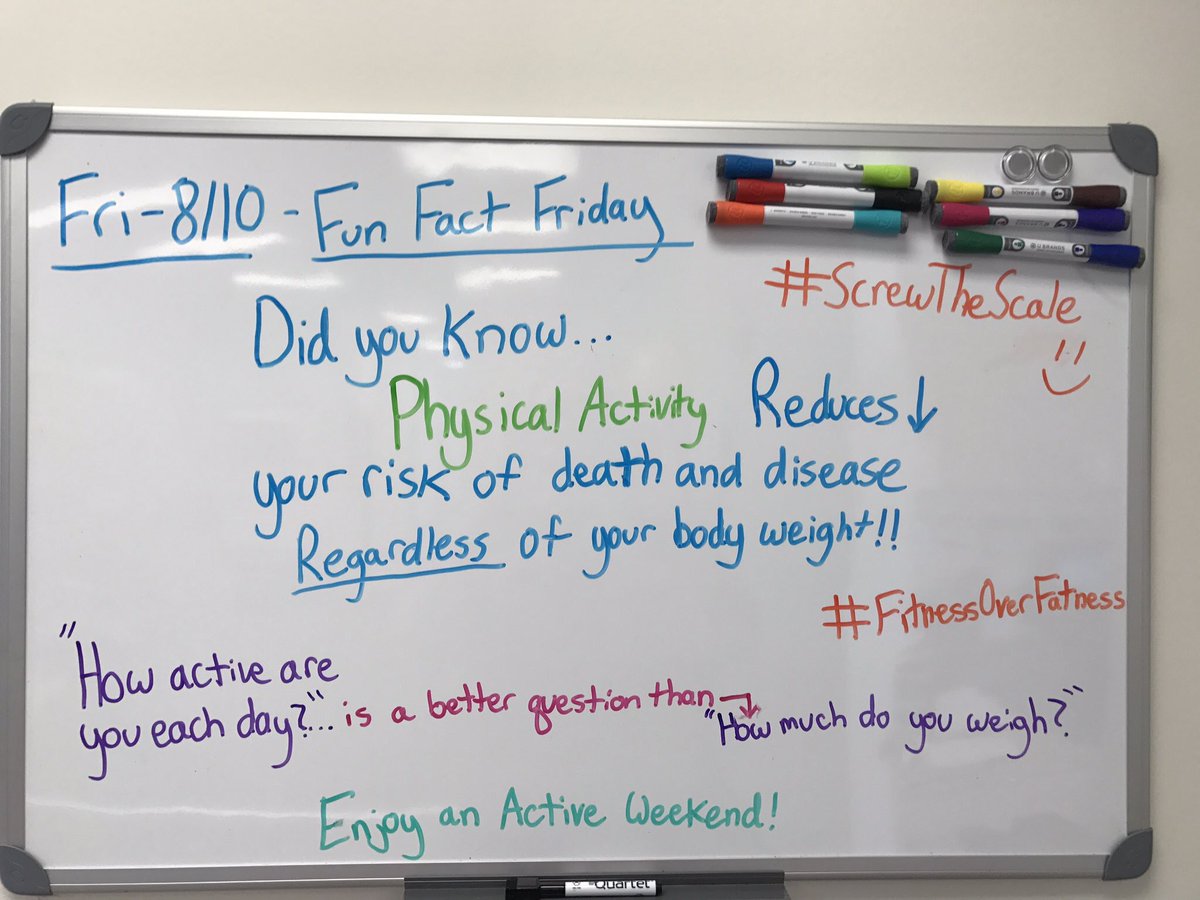 Fri-8/10 - Fun Fact Friday
#ScrewTheScale
Did you know...
Physical Activity Reduces↓
your risk of death and disease
Regardless of your body weight!!
#FitnessOverFatness
"How active are
you each day?"... is a better question than →
"How much do you weigh?"
Enjoy an Active Weekend!
U BRANDS
Quartet